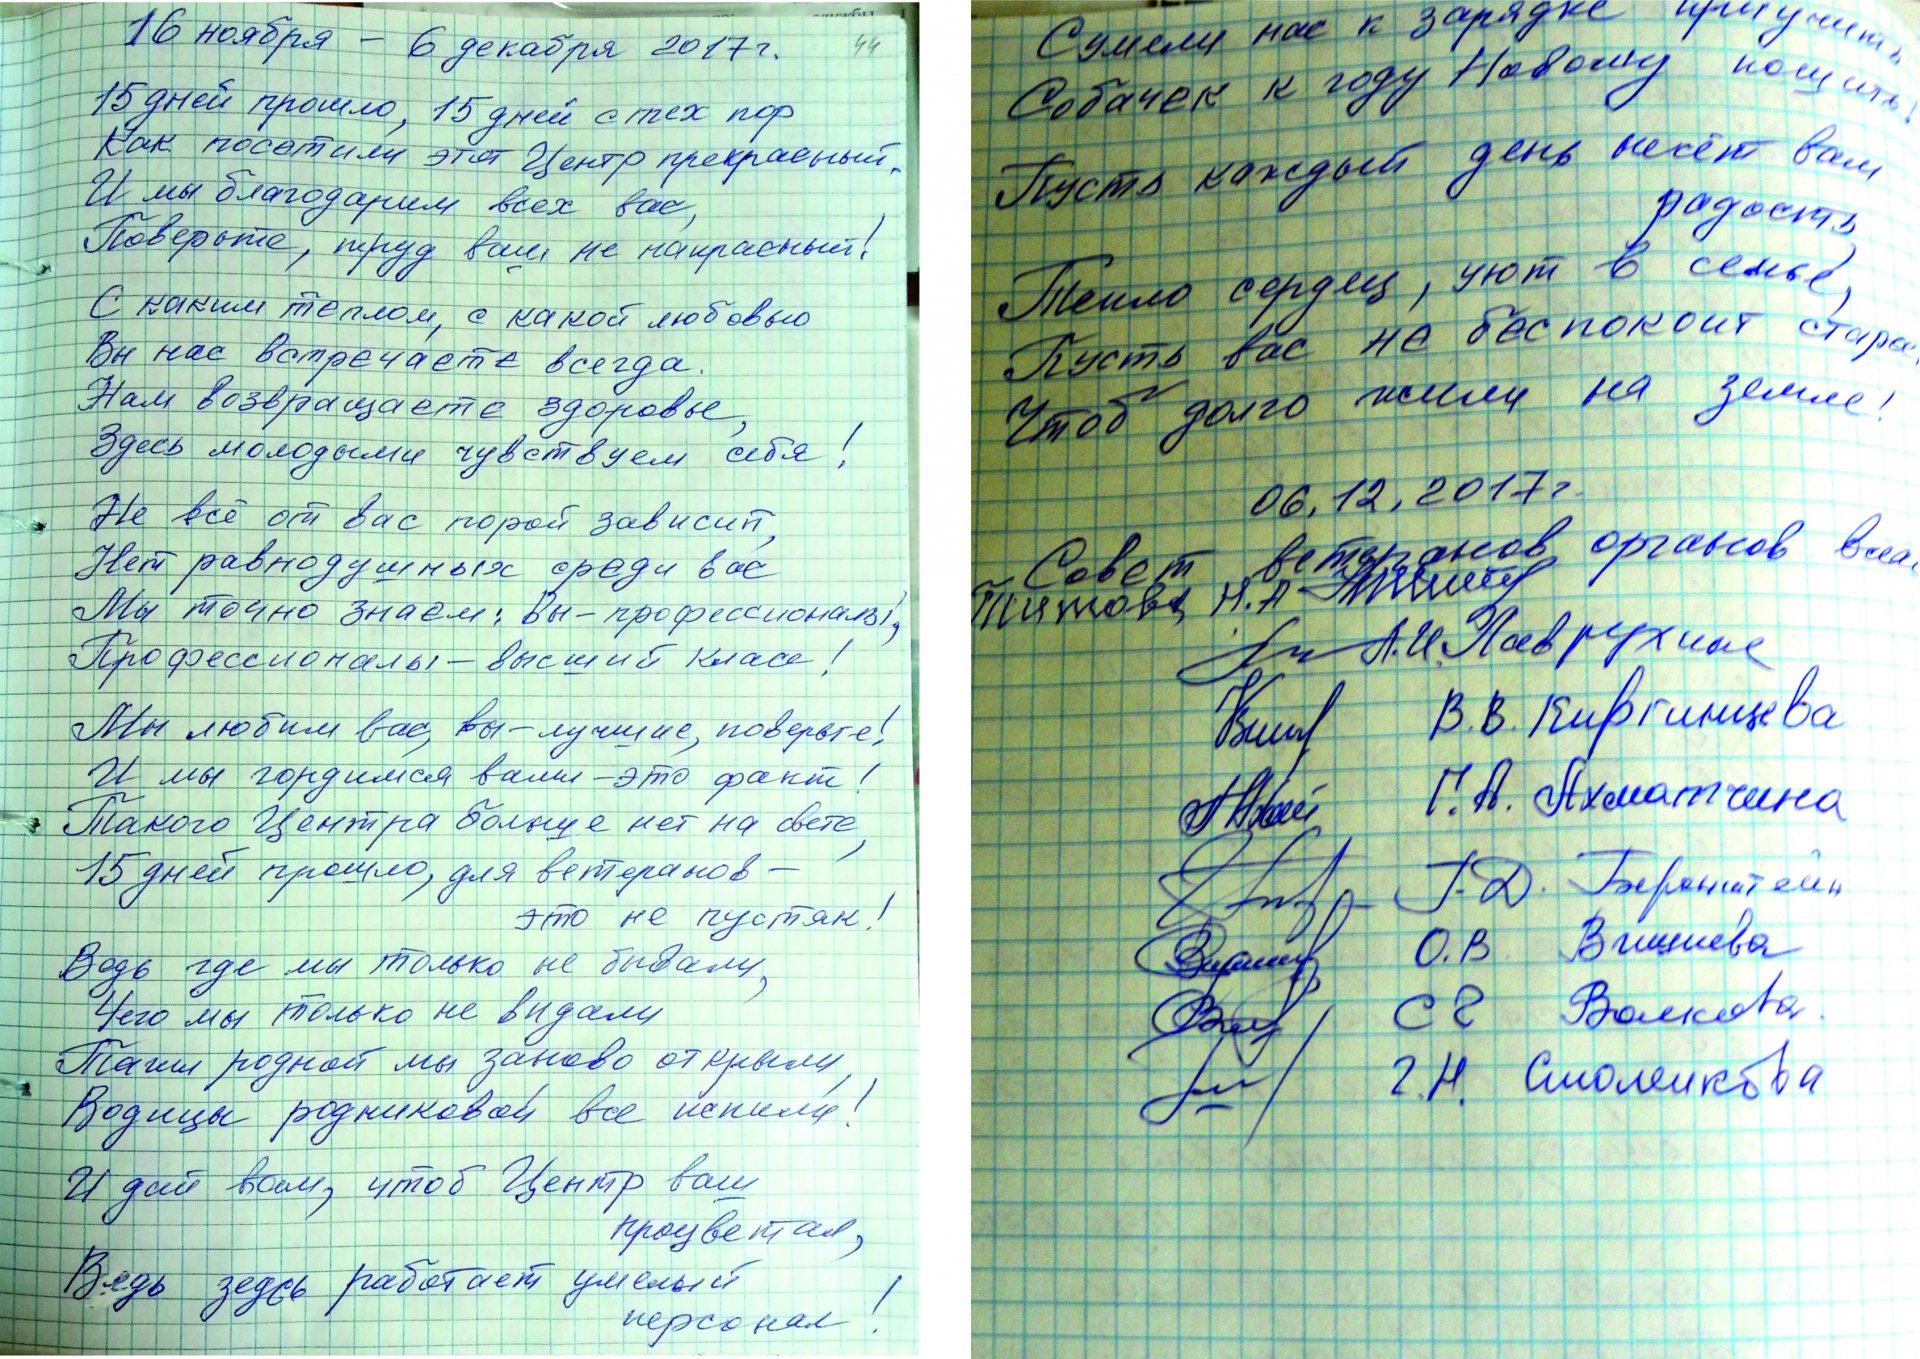 16 ноября – 6 декабря 2017г.
44
15 дней прошло, 15 дней с тех пор
Как посетили этот Центр прекрасный.
И мы благодарим всех вас,
Поверьте, труд ваш не напрасный!
С каким теплом, с какой любовью
Вы нас встречаете всегда.
Нам возвращаете здоровье,
Здесь молодыми чувствуем себя!
Не всё от вас порой зависит,
Нет равнодушных среди вас
Мы точно знаем: вы – профессионалы,
Профессионалы – высший класс!
Мы любим вас, вы – лучшие, поверьте!
И мы гордимся вами – это факт!
Такого Центра больше нет на свете,
15 дней прошло, для ветеранов –
это не пустяк!
Ведь где мы только не бывали,
Чего мы только не видали
Таким родной мы заново открыли,
Водицы родниковой все испили!
И дай вам, чтоб Центр ваш
процветал,
Ведь здесь работает умелый
персонал!
Сумели нас к зарядке приучить,
Собачек к году Новому пошить!
Пусть каждый день несёт вам
радость,
Тепло сердец, уют в семье,
Пусть вас не беспокоит старос
Чтоб долго жили на земле!
06.12.2017г.
Совет ветеранов органов влас
Титова Н.А
А.И. Лаврухина
В.В. Киргинцева
Г.А. Ахматчина
Г.Д. Бернштейн
О.В Вишнева
С Е Волкова.
Г.Н. Смоленкова